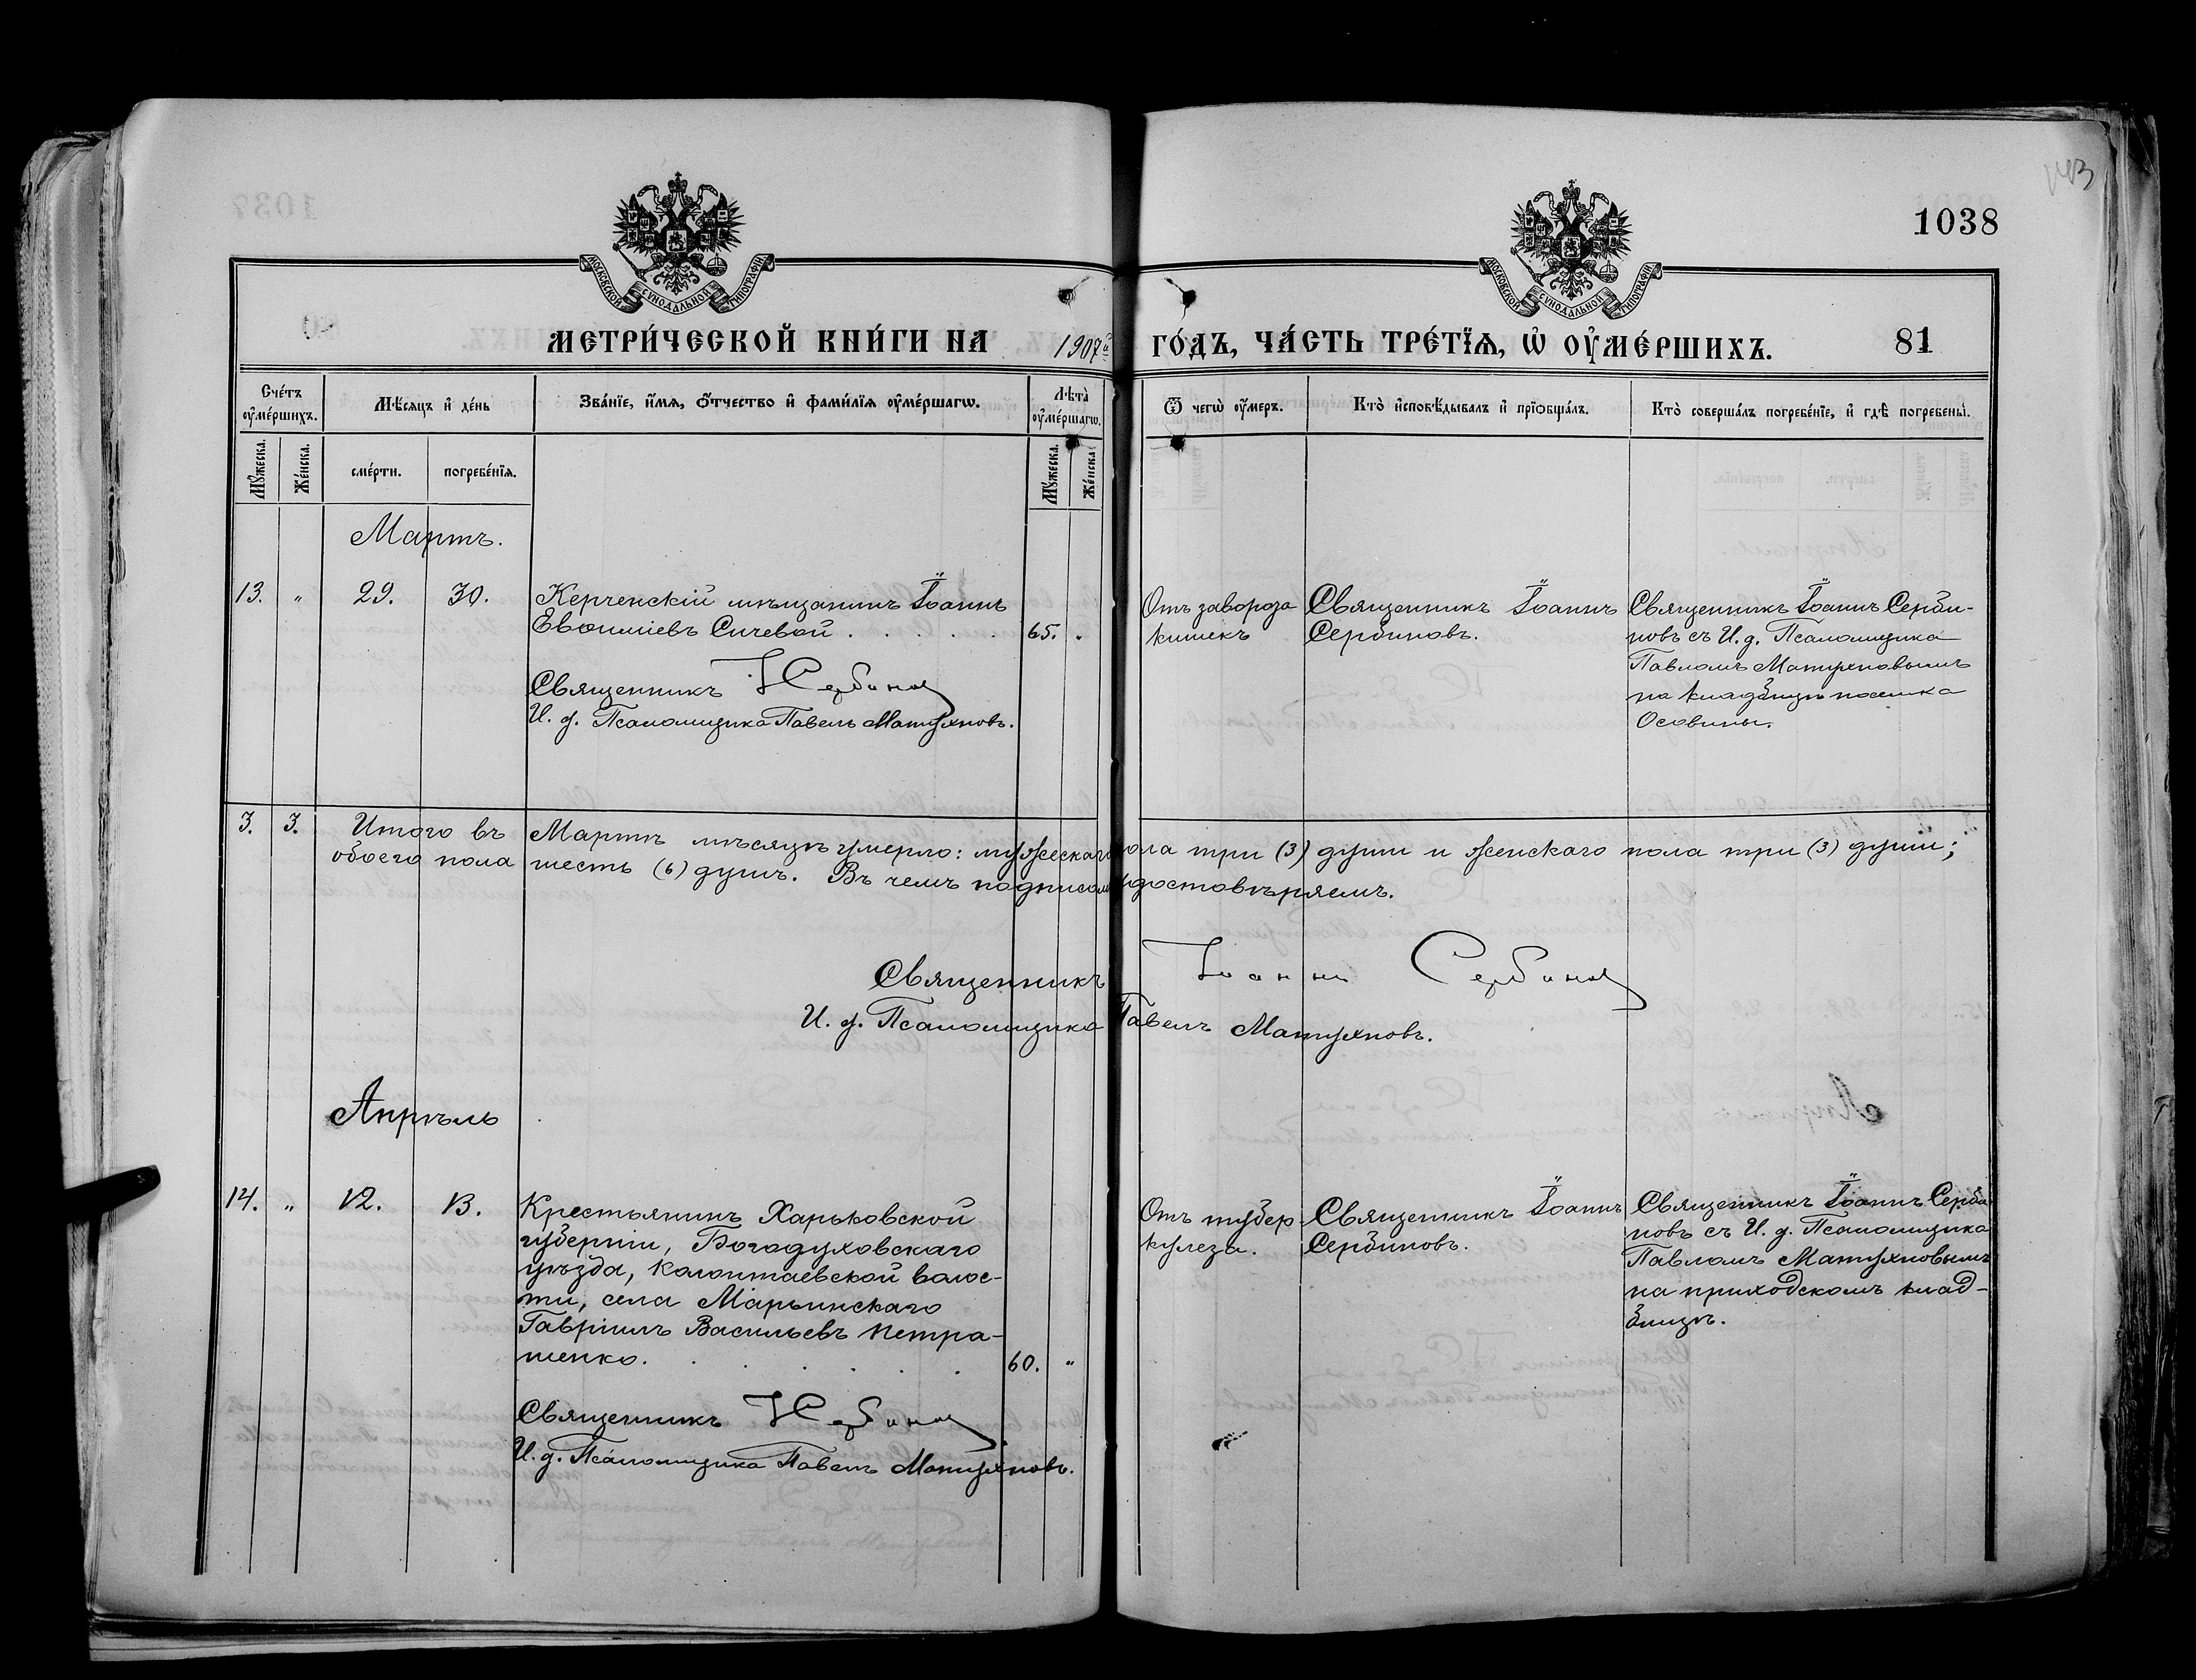 143
1038
МОСКОВСКОЙ СѴНОДАЛЬНОЙ ТИПОГРАФІИ
МОСКОВСКОЙ СѴНОДАЛЬНОЙ ТИПОГРАФІИ
МЕТРИ́ЧЕСКОЙ КНИ́ГИ НА 1907й ГО́ДЪ, ЧА́СТЬ ТРЕ́ТЇѦ, Ѡ҆ ОУ҆МЕ́РШИХЪ.
81
Сче́тъ оу҆ме́ршихъ.
Мѣ́сяцъ и҆ де́нь
Зва́нїе, и҆́мѧ, ѻ҆́тчество и҆ фами́лїѧ оу҆ме́ршагѡ.
Лѣ́та̀ оу҆ме́ршагѡ.
Ѿ чегѡ̀ оу҆́меръ.
Кто̀ и҆сповѣ́дывалъ и҆ прїѻбща́лъ.
Кто̀ соверша́лъ погребе́нїе, и҆ гдѣ̀ погребены̀.
Мꙋ́жеска.
Же́нска.
сме́рти.
погребе́нїѧ.
Мꙋ́жеска.
Же́нска
Мартъ.
13. " 29. 30.
Керченскій мѣщанинъ Іоаннъ
Евѳиміевъ Сичевой . . . . . 65. .
Священникъ І Сербиновъ
И. д. Псаломщика Павелъ Матухновъ.
Отъ заворота
кишекъ
Священникъ Іоаннъ
Сербиновъ.
Священникъ Іоаннъ Серби-
новъ съ И. д. Псаломщика
Павломъ Матухновымъ
на кладбищѣ поселка
Осовины.
3. 3. Итого въ Мартѣ мѣсяцѣ умерло: мужескаго пола три (3) души и женскаго пола три (3) души;
обоего пола шесть (6) душъ. Въ чемъ подписомъ удостовѣряемъ.
Священникъ Іоаннъ Сербиновъ
И. д. Псаломщика Павелъ Матухновъ.
Апрѣль
14. " 12. 13.
Крестьянинъ Харьковской
губерніи, Богодуховскаго
уѣзда, Колонтаевской волос-
ти, села Марьинскаго
Гавріилъ Васильевъ Петра-
шенко. . . . . . 60. "
Священникъ І Сербиновъ
И. д. Псаломщика Павелъ Матухновъ.
Отъ тубер-
кулеза.
Священникъ Іоаннъ
Сербиновъ.
Священникъ Іоаннъ Серби
новъ съ И. д. Псаломщика
Павломъ Матухновымъ
на приходскомъ клад-
бищѣ.